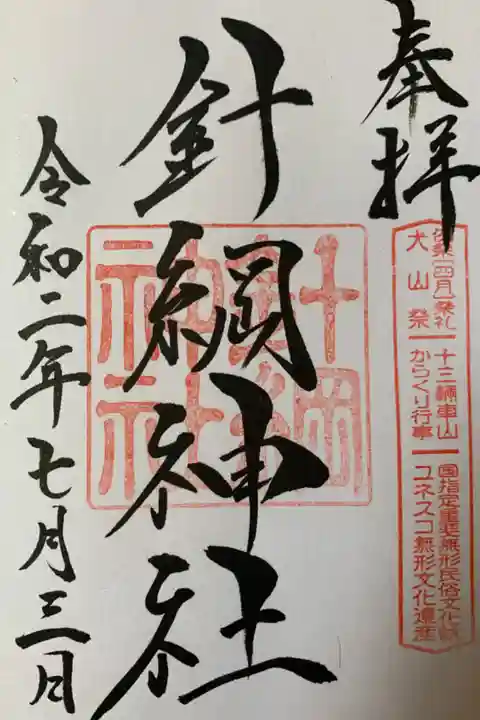 奉拝
十三輌車山
国指定重要無形民俗文化財
犬山祭
からくり行事
ユネスコ無形文化遺産
針綱神社
針綱
神社
令和二年七月三日